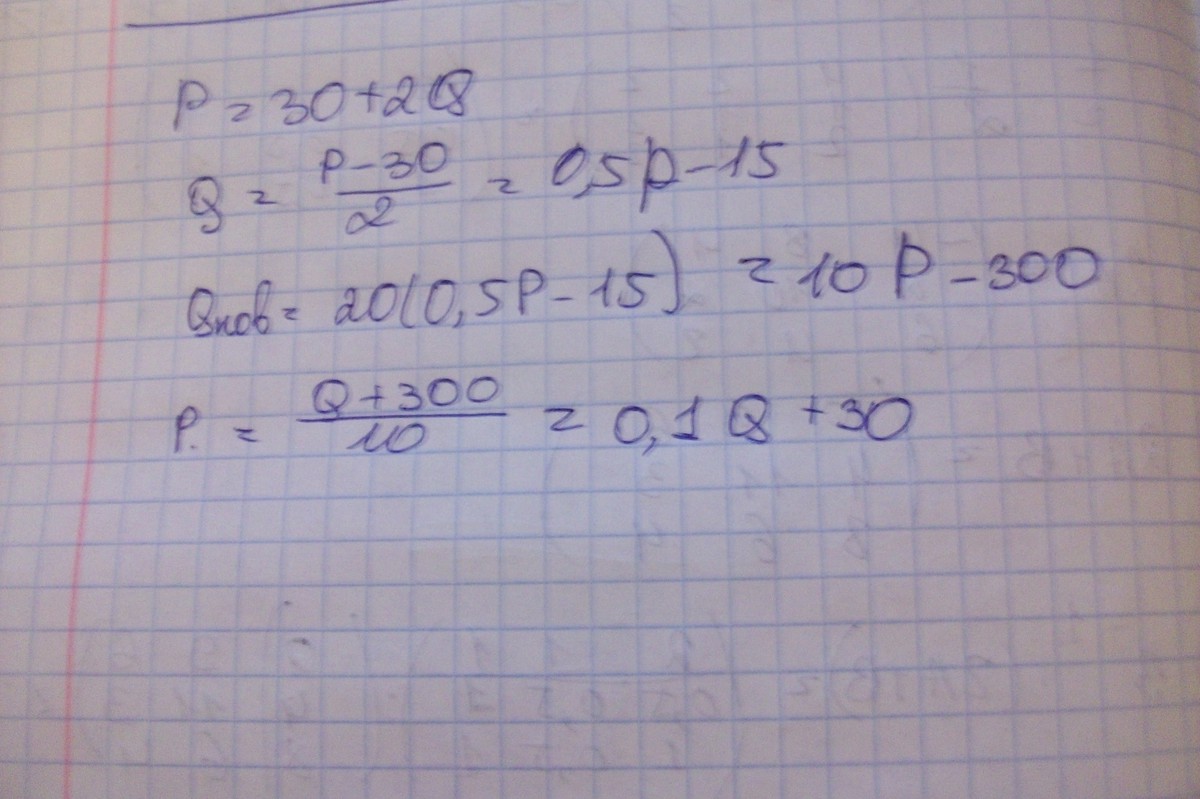 P = 30 + 2Q
Q = (P - 30)/2 = 0,5p - 15
Qнов = 20(0,5P - 15) = 10P - 300
P. = (Q + 300)/10 = 0,1Q + 30